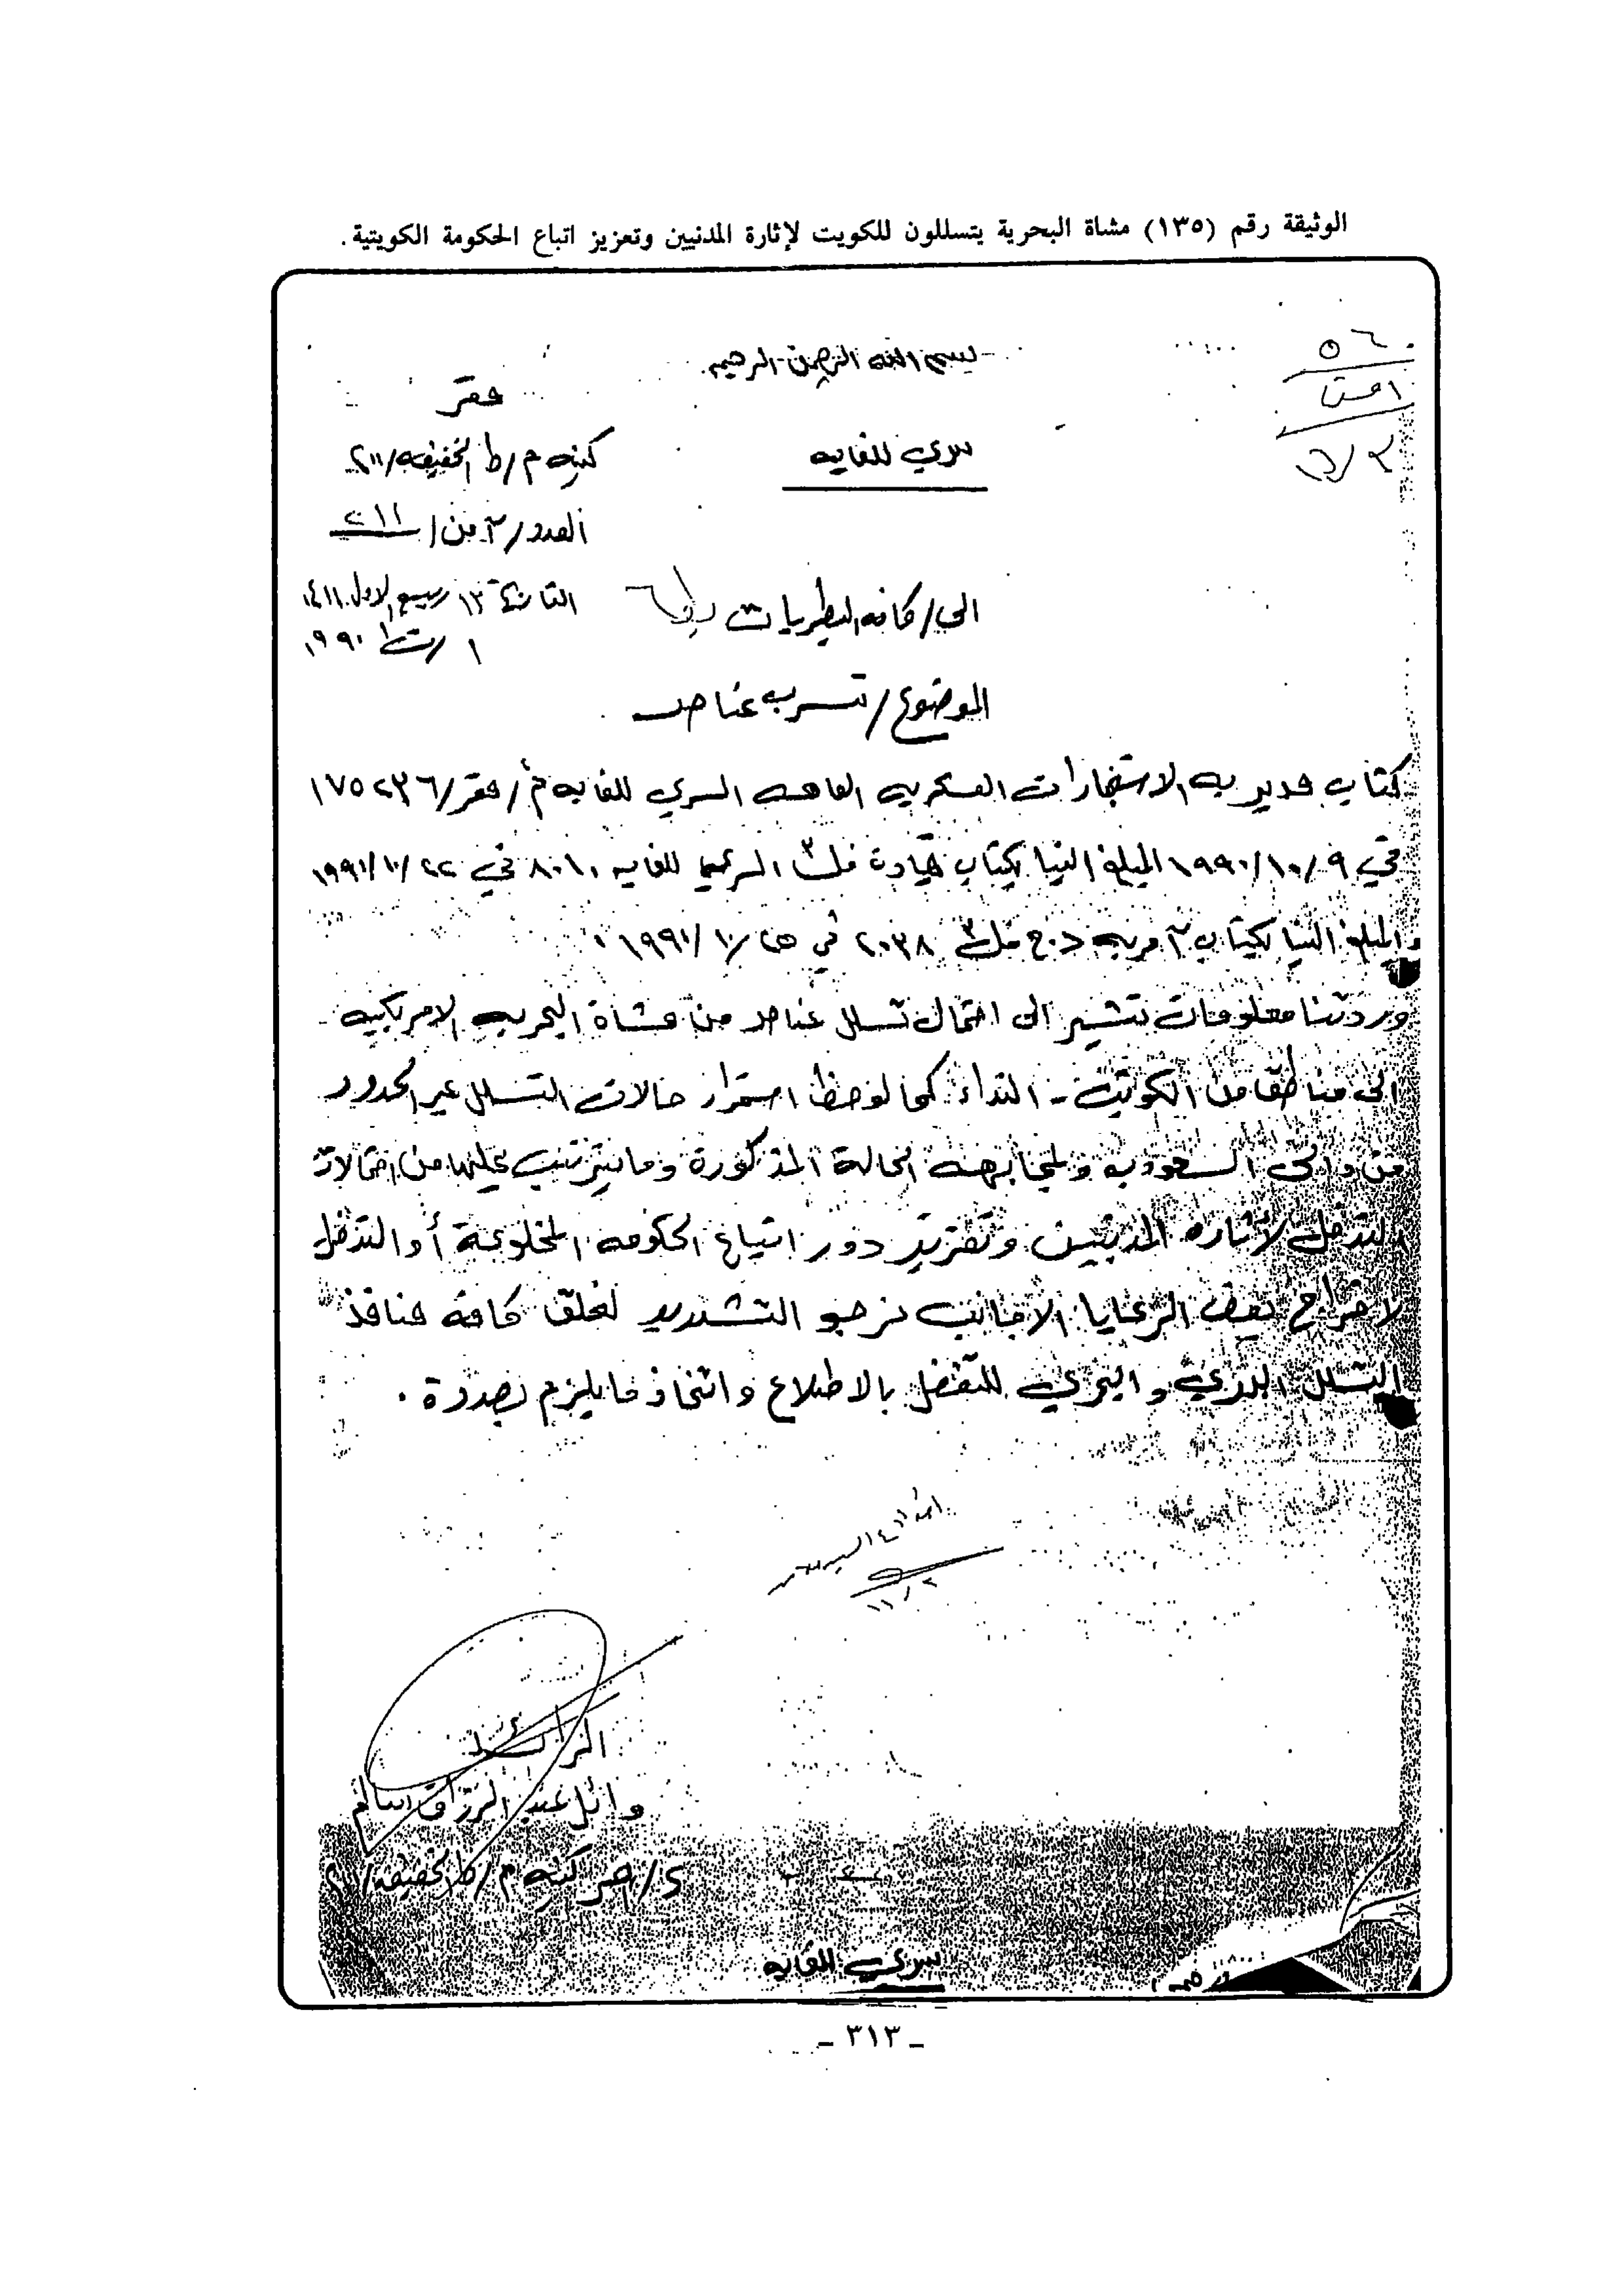 الوثيقة رقم (١٣٥) مشاة البحرية يتسللون للكويت لإثارة المدنيين وتعزيز اتباع الحكومة الكويتية.
بسم الله الرحمن الرحيم
٥٦
امن
٣/١١
سري للغايه
مقر
كتيبه م/ط الخفيفه/٢١١
العدد/٢ من/٢١١
الى/كافه البطريات
التاريخ ١٣ ربيع الاول ١٤١١
١/ت١/١٩٩٠
الموضوع/تسرب عناصر
كتاب مديريه الاستخبارات العسكريه العامه السري للغايه م١/مقر/١٧٥٢٣٦
في ١٩٩٠/١٠/٩ المبلغ الينا بكتاب قيادة فل٣ السري للغايه ٨٠١٠ في ١٩٩٠/١٠/٢٢
والمبلغ الينا بكتاب مريه د.ج فل٣ ٢٠٣٨ في ١٩٩٠/١٠/٢٥
وردتنا معلومات تشير الى احتمال تسلل عناصر من مشاة البحريه الامريكيه
الى مناطق من الكويت - النداء كما لوحظ استمرار حالات التسلل عبر الحدود
من والى السعوديه ولمجابهه الحالة المذكورة وما يترتب عليها من احتمالات
التدخل لأثاره المدنيين وتعزيز دور اتباع الحكومه المخلوعة أو التدخل
لاخراج بعض الرعايا الاجانب نرجو التشديد لغلق كافه منافذ
التسلل البري والبحري للتفضل بالاطلاع واتخاذ مايلزم بصدده.
١١/٢
الرائد
وائل عبد الرزاق سالم
ع/امر كتيبه م/ط الخفيفه/٢١١
سري للغايه
ـ ٣١٣ ـ